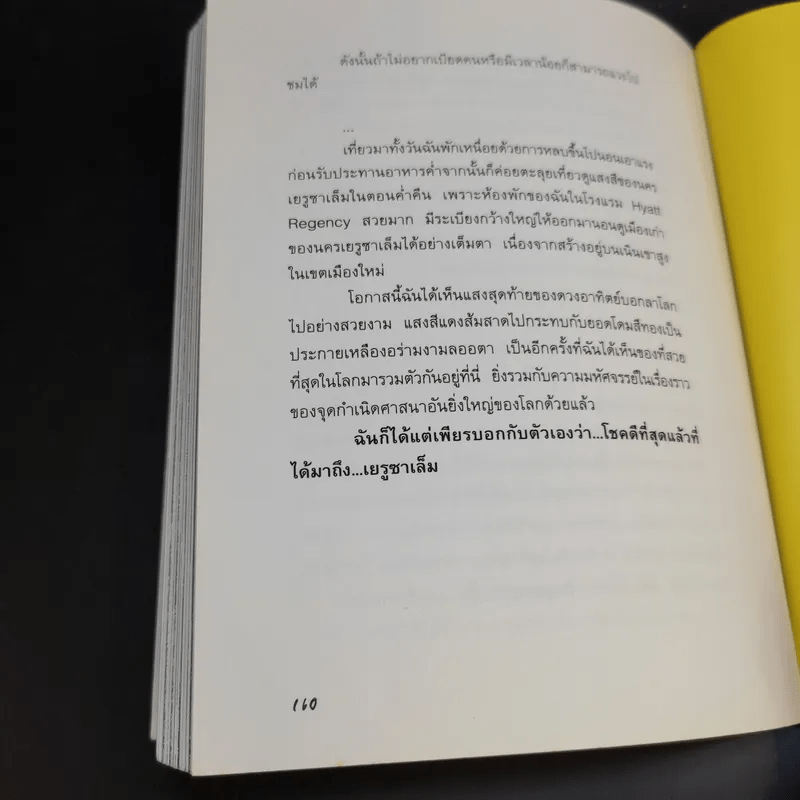 ดังนั้นถ้าไม่อยากเบียดคนหรือมีเวลาน้อยก็สามารถแวะไป
ชมได้
...
เที่ยวมาทั้งวันฉันพักเหนื่อยด้วยการหลบขึ้นไปนอนเอาแรง
ก่อนรับประทานอาหารค่ำจากนั้นก็ค่อยตะลุยเที่ยวดูแสงสีของนคร
เยรูซาเล็มในตอนค่ำคืน เพราะห้องพักของฉันในโรงแรม Hyatt
Regency สวยมาก มีระเบียงกว้างใหญ่ให้ออกมานอนดูเมืองเก่า
ของนครเยรูซาเล็มได้อย่างเต็มตา เนื่องจากสร้างอยู่บนเนินเขาสูง
ในเขตเมืองใหม่
โอกาสนี้ฉันได้เห็นแสงสุดท้ายของดวงอาทิตย์บอกลาโลก
ไปอย่างสวยงาม แสงสีแดงส้มสาดไปกระทบกับยอดโดมสีทองเป็น
ประกายเหลืองอร่ามงามลออตา เป็นอีกครั้งที่ฉันได้เห็นของที่สวย
ที่สุดในโลกมารวมตัวกันอยู่ที่นี่ ยิ่งรวมกับความมหัศจรรย์ในเรื่องราว
ของจุดกำเนิดศาสนาอันยิ่งใหญ่ของโลกด้วยแล้ว
ฉันก็ได้แต่เพียรบอกกับตัวเองว่า...โชคดีที่สุดแล้วที่
ได้มาถึง...เยรูซาเล็ม
160